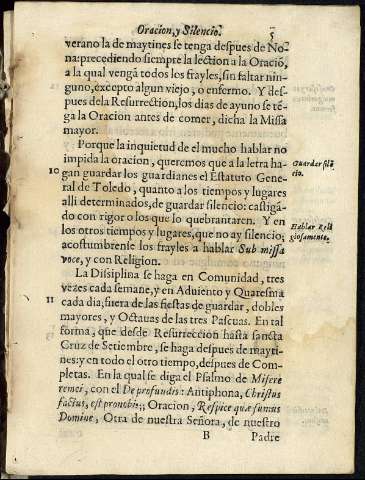 Oracion, y Silencio. 5
verano la de maytines se tenga despues de No-
na: precediendo siempre la lection a la Oraciõ,
a la qual vengã todos los frayles, sin faltar nin-
guno, excepto algun viejo, o enfermo. Y des-
pues de la Resurrection, los dias de ayuno se tẽ-
ga la Oracion antes de comer, dicha la Missa
mayor.
Porque la inquietud de el mucho hablar no
impida la oracion, queremos que a la letra ha-
10 gan guardar los guardianes el Estatuto Gene-
ral de Toledo, quanto a los tiempos y lugares
alli determinados, de guardar silencio: castigã-
do con rigor o los que lo quebrantaren. Y en
los otros tiempos y lugares, que no ay silencio;
acostumbrense los frayles a hablar Sub missa
voce, y con Religion.
Guardar silẽ
cio.
Hablar Reli
giosamente.
La Dissiplina se haga en Comunidad, tres
vezes cada semane, y en Aduiento y Quaresma
11 cada dia, fuera de las fiestas de guardar, dobles
mayores, y Octauas de las tres Pascuas. En tal
forma, que desde Resurrección hasta sancta
Cruz de Setiembre, se haga despues de mayti-
nes: y en todo el otro tiempo, despues de Com-
pletas. En la qual se diga el Psalmo de Misere
remei, con el De profundis: Antiphona, Christus
factus, est pro nobis;; Oracion, Respice quæsumus
Domine, Otra de nuestra Señora, de nuestro
B Padre